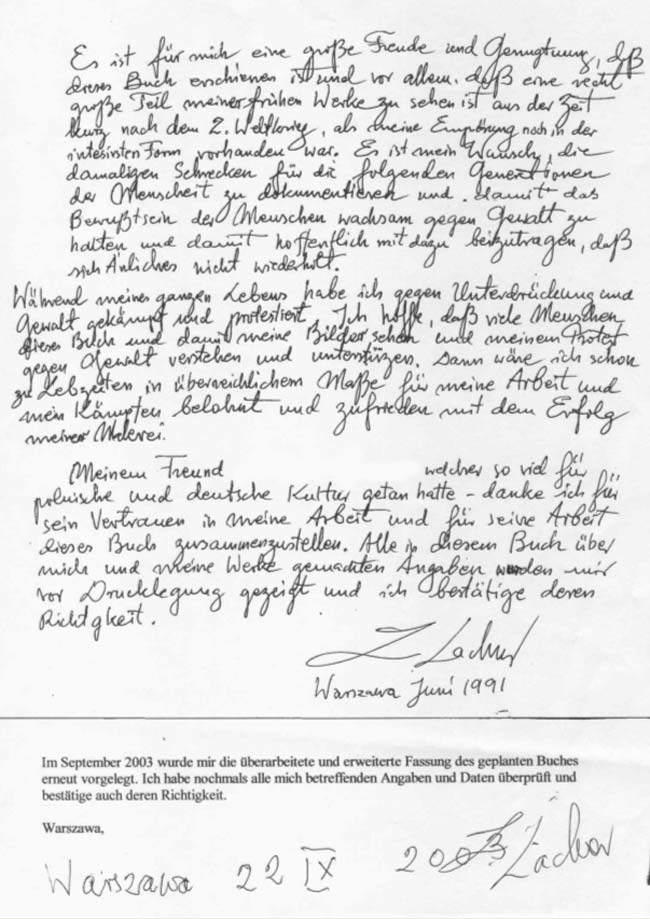 Es ist für mich eine große Freude und Genugtuung, daß
dieses Buch erschienen ist und vor allem, daß eine recht
große Teil meiner frühen Werke zu sehen ist aus der Zeit
kurz nach dem 2. Weltkrieg, als meine Empörung noch in der
intesivsten Form vorhanden war. Es ist mein Wunsch, die
damaligen Schrecken für die folgenden Generationen
der Menscheit zu dokumentieren und damit das
Bewußtsein der Menschen wachsam gegen Gewalt zu
halten und damit hoffentlich mit dazu beizutragen, daß
sich Änliches nicht wiederholt.
Während meines ganzen Lebens habe ich gegen Unterdrückung und
Gewalt gekämpft und protestiert. Ich hoffe, daß viele Menschen
dieses Buch und damit meine Bilder sehen und meinem Protest
gegen Gewalt verstehen und unterstüzen. Dann wäre ich schon
zu Lebzeiten in überreichlichem Maße für meine Arbeit und
mein Kämpfen belohnt und zufrieden mit dem Erfolg
meiner Malerei.
Meinem Freund welcher so viel für
polnische und deutsche Kultur getan hatte - danke ich für
sein Vertrauen in meine Arbeit und für seine Arbeit
dieses Buch zusammenzustellen. Alle in diesem Buch über
mich und meine Werke gemachten Angaben wurden mir
vor Drucklegung gezeigt und ich bestätige deren
Richtgkeit.
Warszawa Juni 1991
Im September 2003 wurde mir die überarbeitete und erweiterte Fassung des geplanten Buches
erneut vorgelegt. Ich habe nochmals alle mich betreffenden Angaben und Daten überprüft und
bestätige auch deren Richtigkeit.
Warszawa,
Warszawa 22 IX 2003